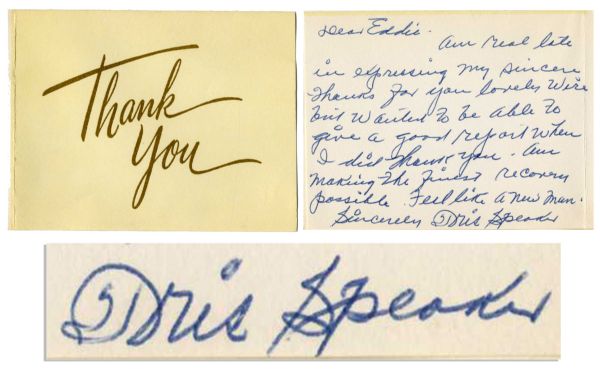 Thank
You
Dear Eddie.
Am real late
in expressing my sincere
thanks for you lovely wire
but wanted to be able to
give a good report when
I did thank you. Am
making the finest recovery
possible. Feel like a new man.
Sincerely Tris Speaker
Tris Speaker